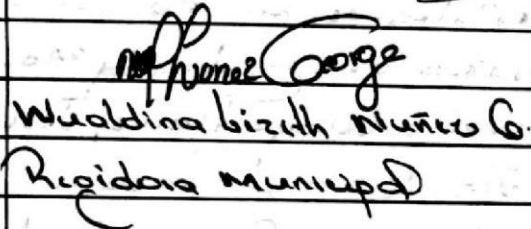 George
Wualdina Lizeth Nuñez G.
Regidora Municipal